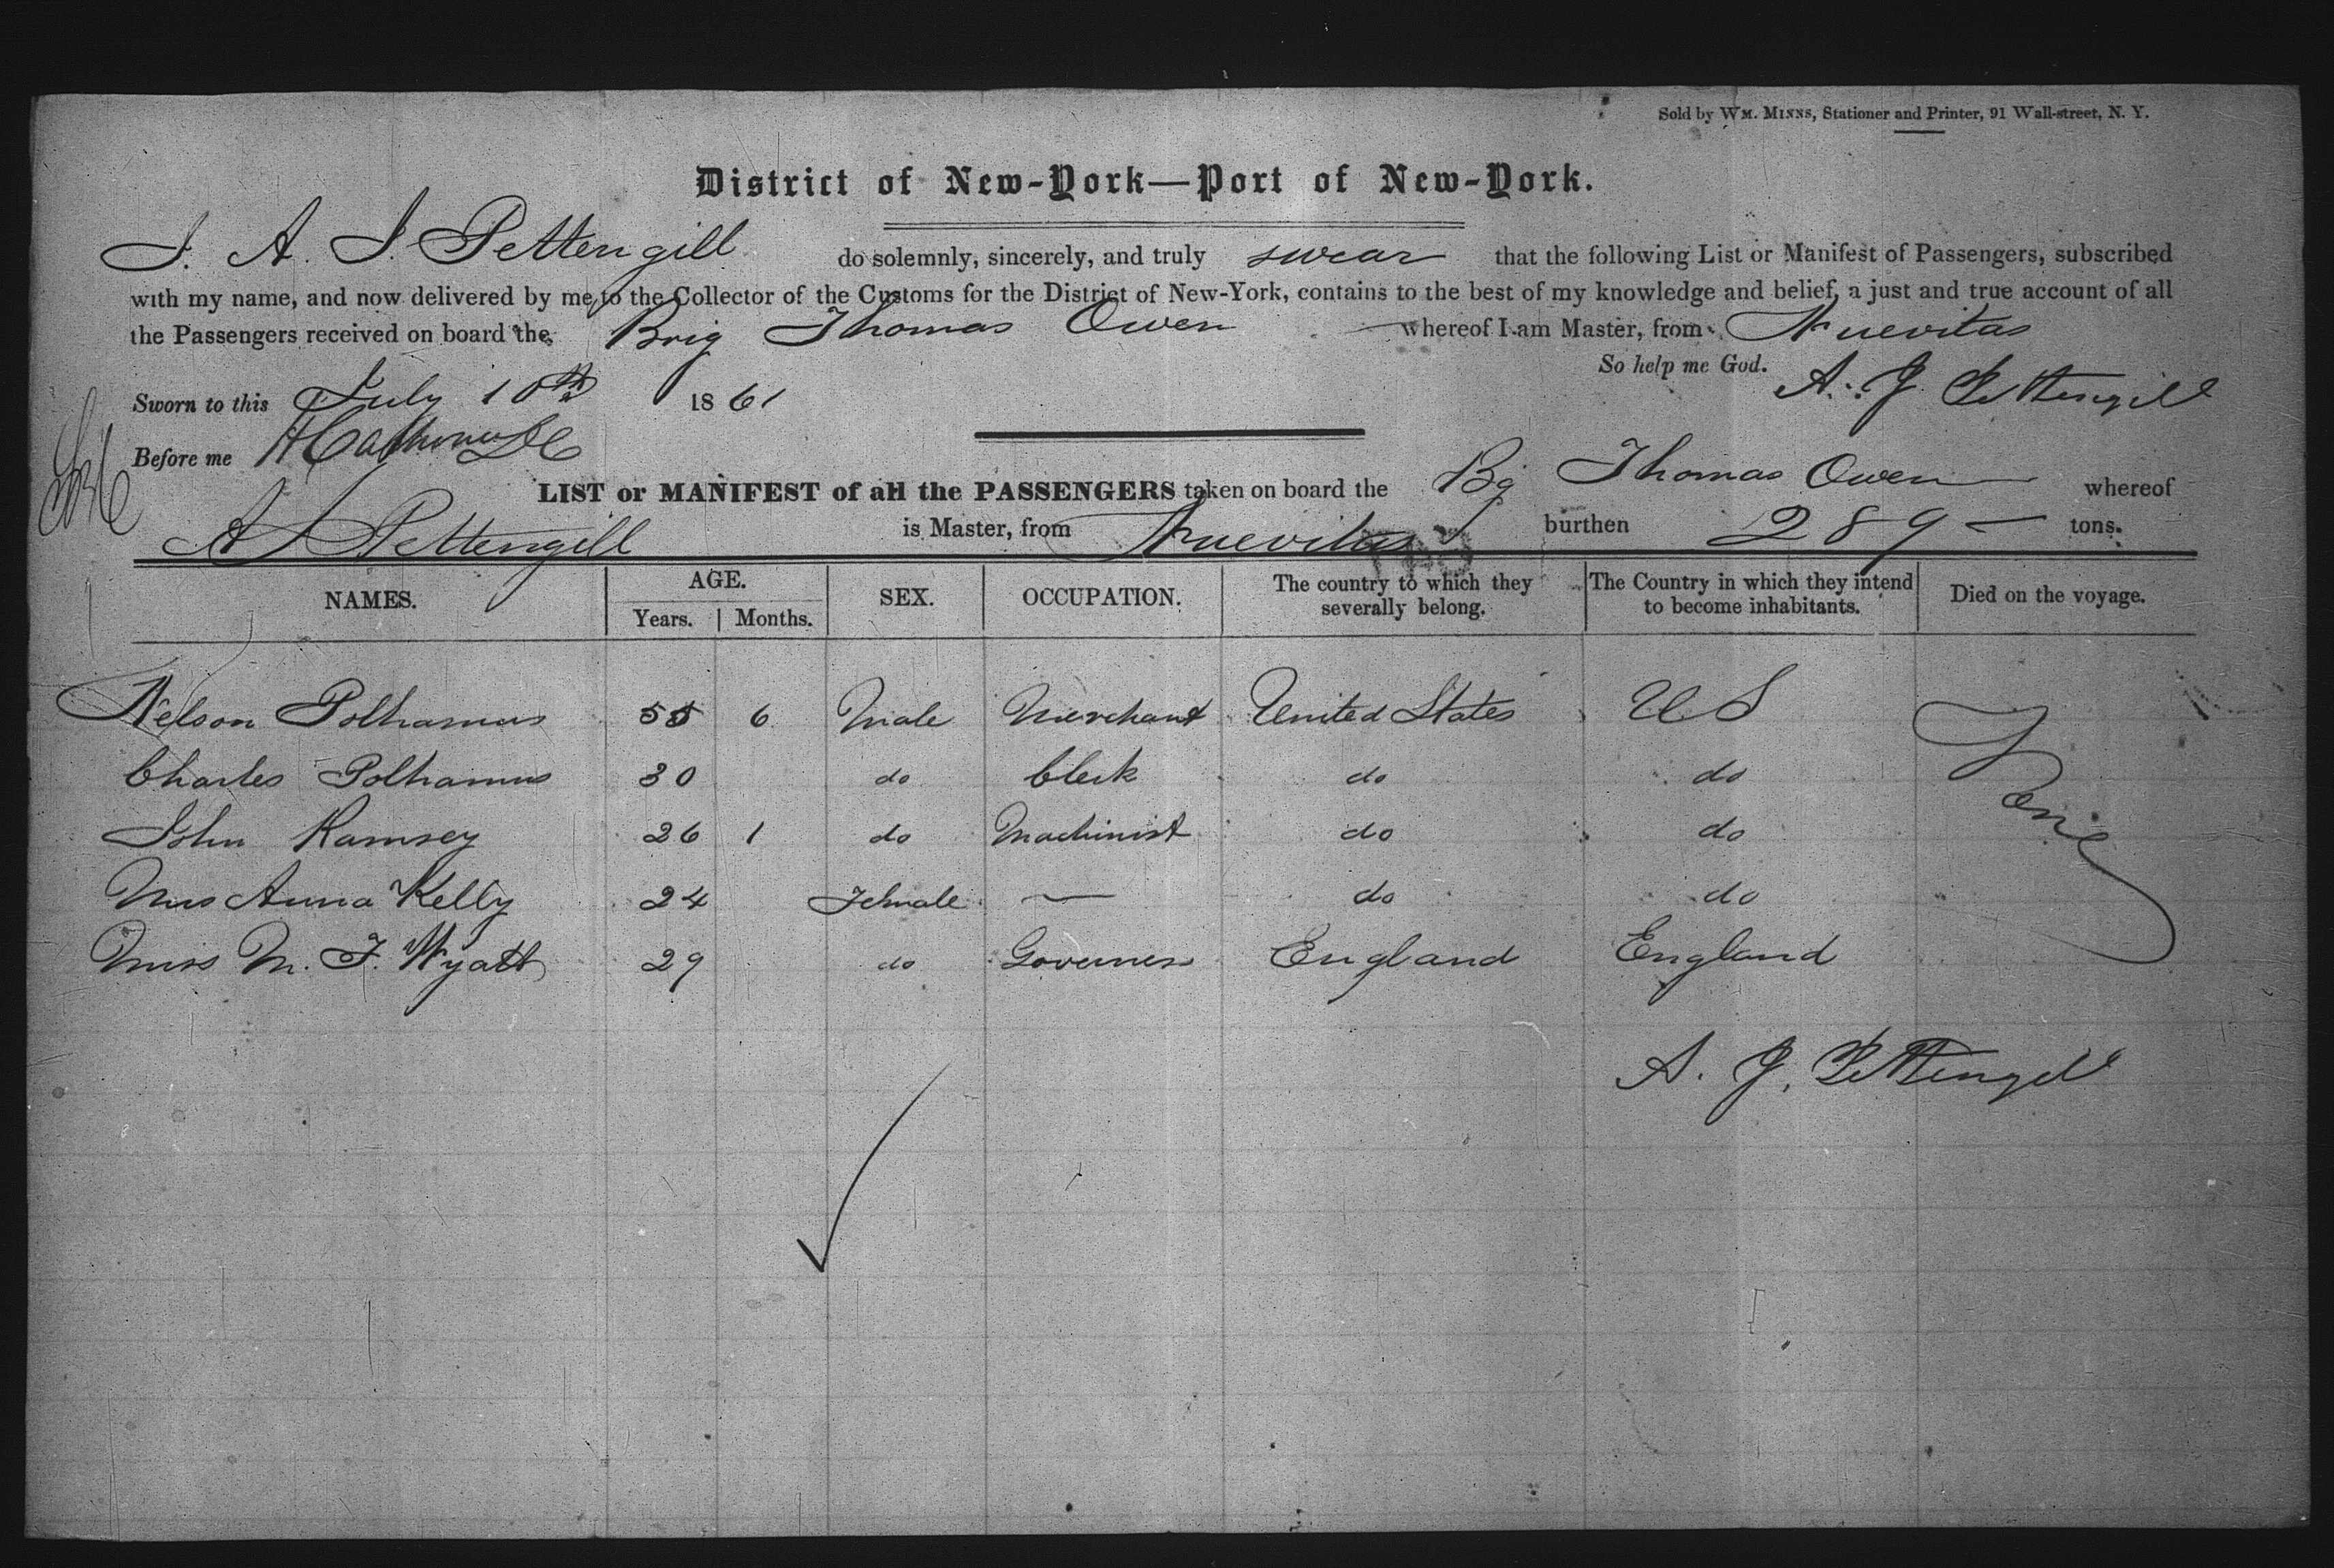 Sold by WM. MINNS, Stationer and Printer, 91 Wall-street, N. Y.
District of New-York—Port of New-York.
I. A. J. Pettengill do solemnly, sincerely, and truly swear that the following List or Manifest of Passengers, subscribed
with my name, and now delivered by me to the Collector of the Customs for the District of New-York, contains to the best of my knowledge and belief, a just and true account of all
the Passengers received on board the Brig Thomas Owen whereof I am Master, from Nuevitas
So help me God.
Sworn to this July 10th 1861 A. J. Pettengill
Before me
LIST or MANIFEST of all the PASSENGERS taken on board the Bg Thomas Owen whereof
A J Pettengill is Master, from Nuevitas burthen 289 — tons.
NAMES. AGE. Years. Months. SEX. OCCUPATION. The country to which they severally belong. The Country in which they intend to become inhabitants. Died on the voyage.
Nelson Polhamus 55 6 Male Merchant United States U S None
Charles Polhamus 30 do Clerk do do
John Ramsey 26 1 do Machinist do do
Mrs Anna Kelly 24 Female — do do
Miss M. F. Wyatt 29 do Governess England England
A. J. Pettengill